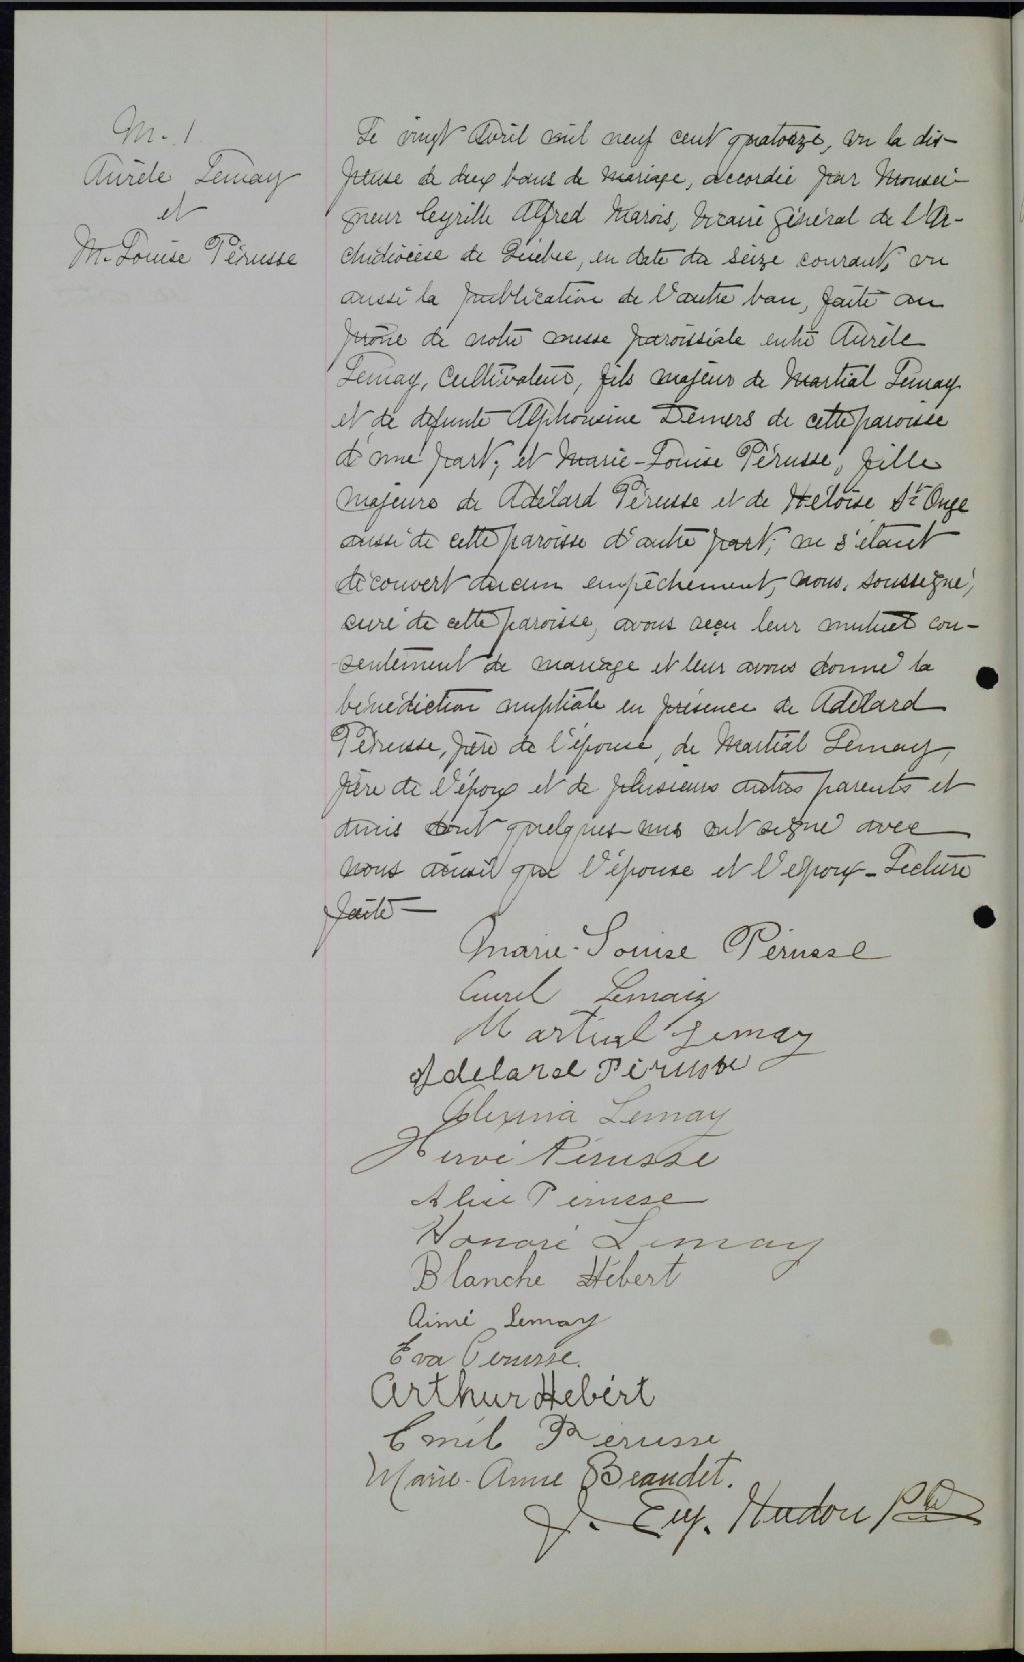 M. 1.
Aurèle Lemay
et
M. Louise Pérusse
Le vingt Avril mil neuf cent quatorze, vu la dis-
pense de deux bans de mariage, accordée par Monsei-
gneur Cyrille Alfred Marois, Vicaire Général de l'Ar-
chidiocèse de Québec, en date du seize courant, vu
aussi la publication de l'autre ban, faite au
prône de notre messe paroissiale entre Aurèle
Lemay, Cultivateur, fils majeur de Martial Lemay
et de défunte Alphonsine Demers de cette paroisse
d'une part; et Marie-Louise Pérusse, fille
majeure de Adélard Pérusse et de Héloïse St Onge
aussi de cette paroisse d'autre part; ne s'étant
découvert aucun empêchement, nous, soussigné,
curé de cette paroisse, avons reçu leur mutuel con-
sentement de mariage et leur avons donné la
bénédiction nuptiale en présence de Adélard
Pérusse, père de l'épouse, de Martial Lemay,
père de l'époux et de plusieurs autres parents et
amis dont quelques-uns ont signé avec
nous ainsi que l'épouse et l'époux - Lecture
faite -
Marie-Louise Pérusse
Aurel Lemay
Martial Lemay
Adelard Pérusse
Alexina Lemay
Hervé Pérusse
Alice Pérusse
Honoré Lemay
Blanche Hébert
Aimé Lemay
Eva Perusse.
Arthur Hebért
Emile Pérusse
Marie-Anne Beaudet.
J. Eug. Hudon Ptre